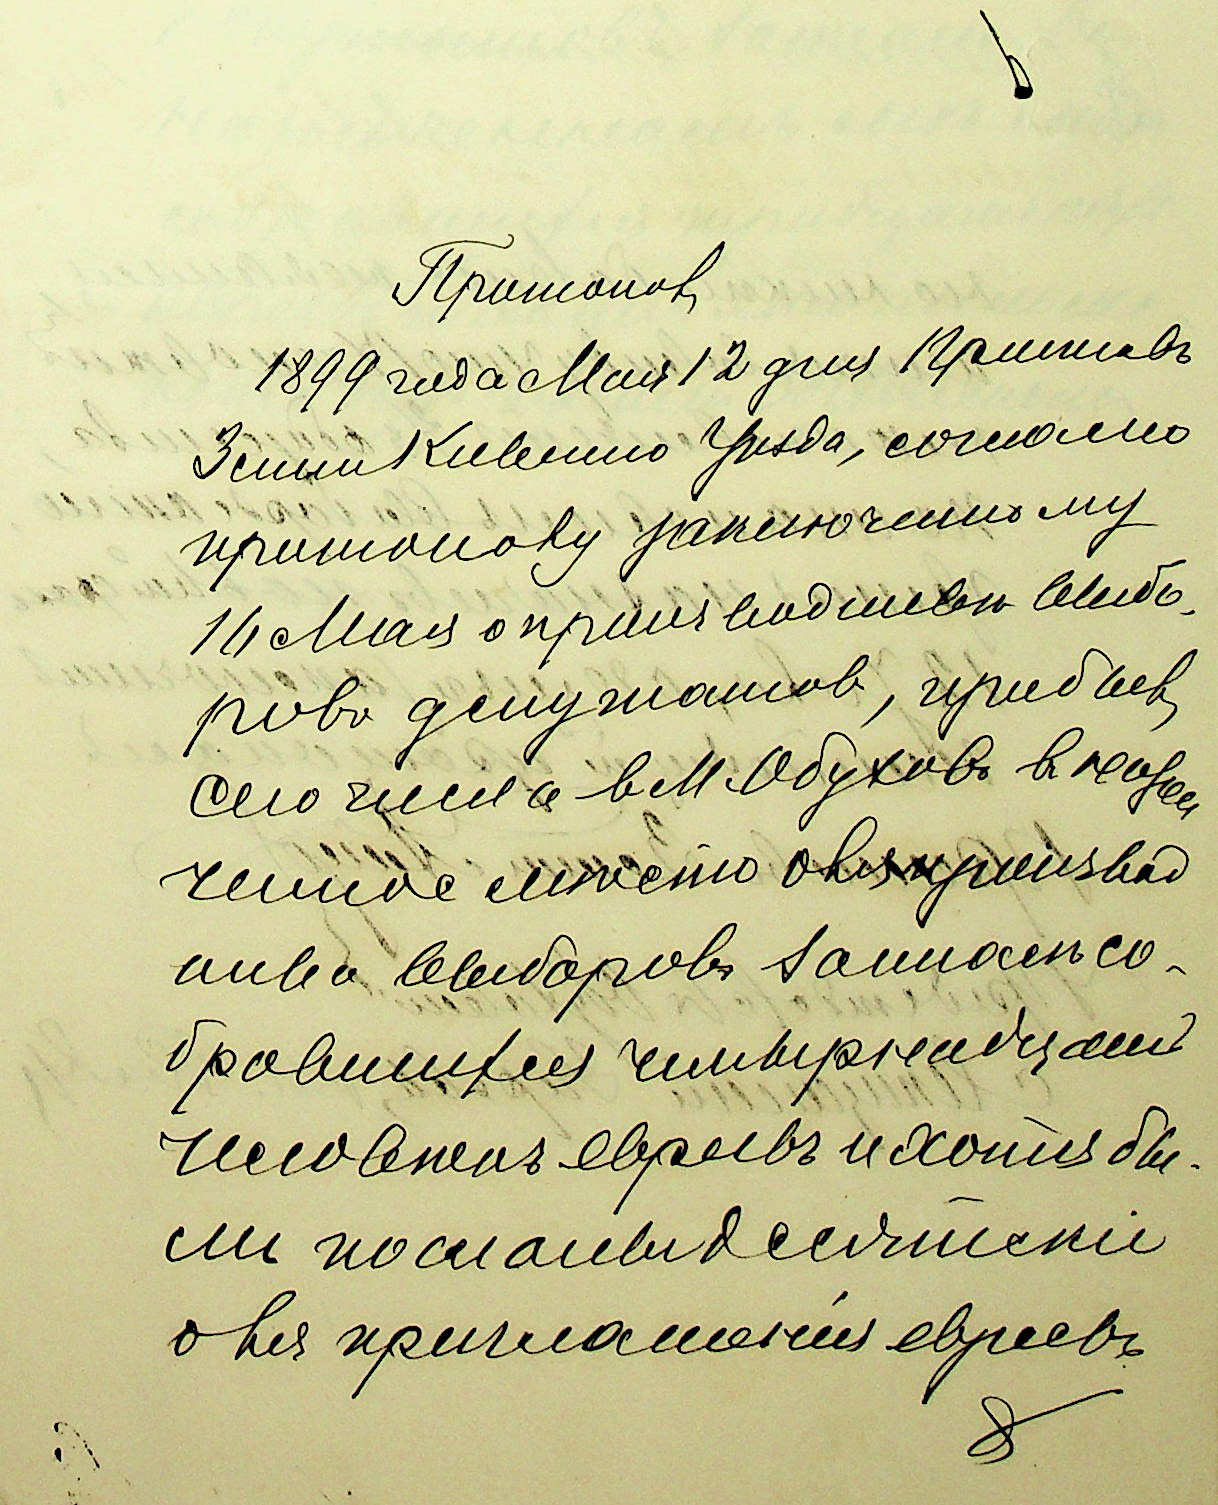 Протоколъ
1899 года Мая 12 дня Приставъ
3 стана Кіевскаго Уѣзда, согласно
протоколу заключенному
11 Мая о производствѣ выбо-
ровъ депутатовъ, прибывъ
сего числа в М. Обуховъ в назна
ченное мѣсто для производ
ства выборовъ засталъ со-
бравшихся четырнадцать
человѣкъ евреевъ и хотя бы-
ли посланы десятскіе
для приглашенія евреевъ